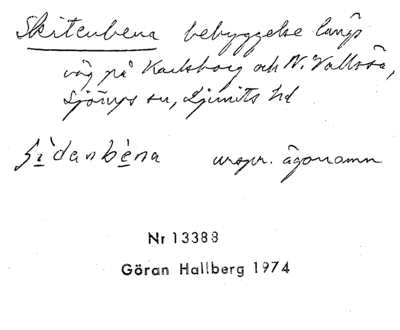 Skitenbena bebyggelse längs
väg på Karlsborg och N. Vallösa,
Ljörups sn, Ljunits hd
si`danbèna urspr. ägonamn
Nr 13388
Göran Hallberg 1974